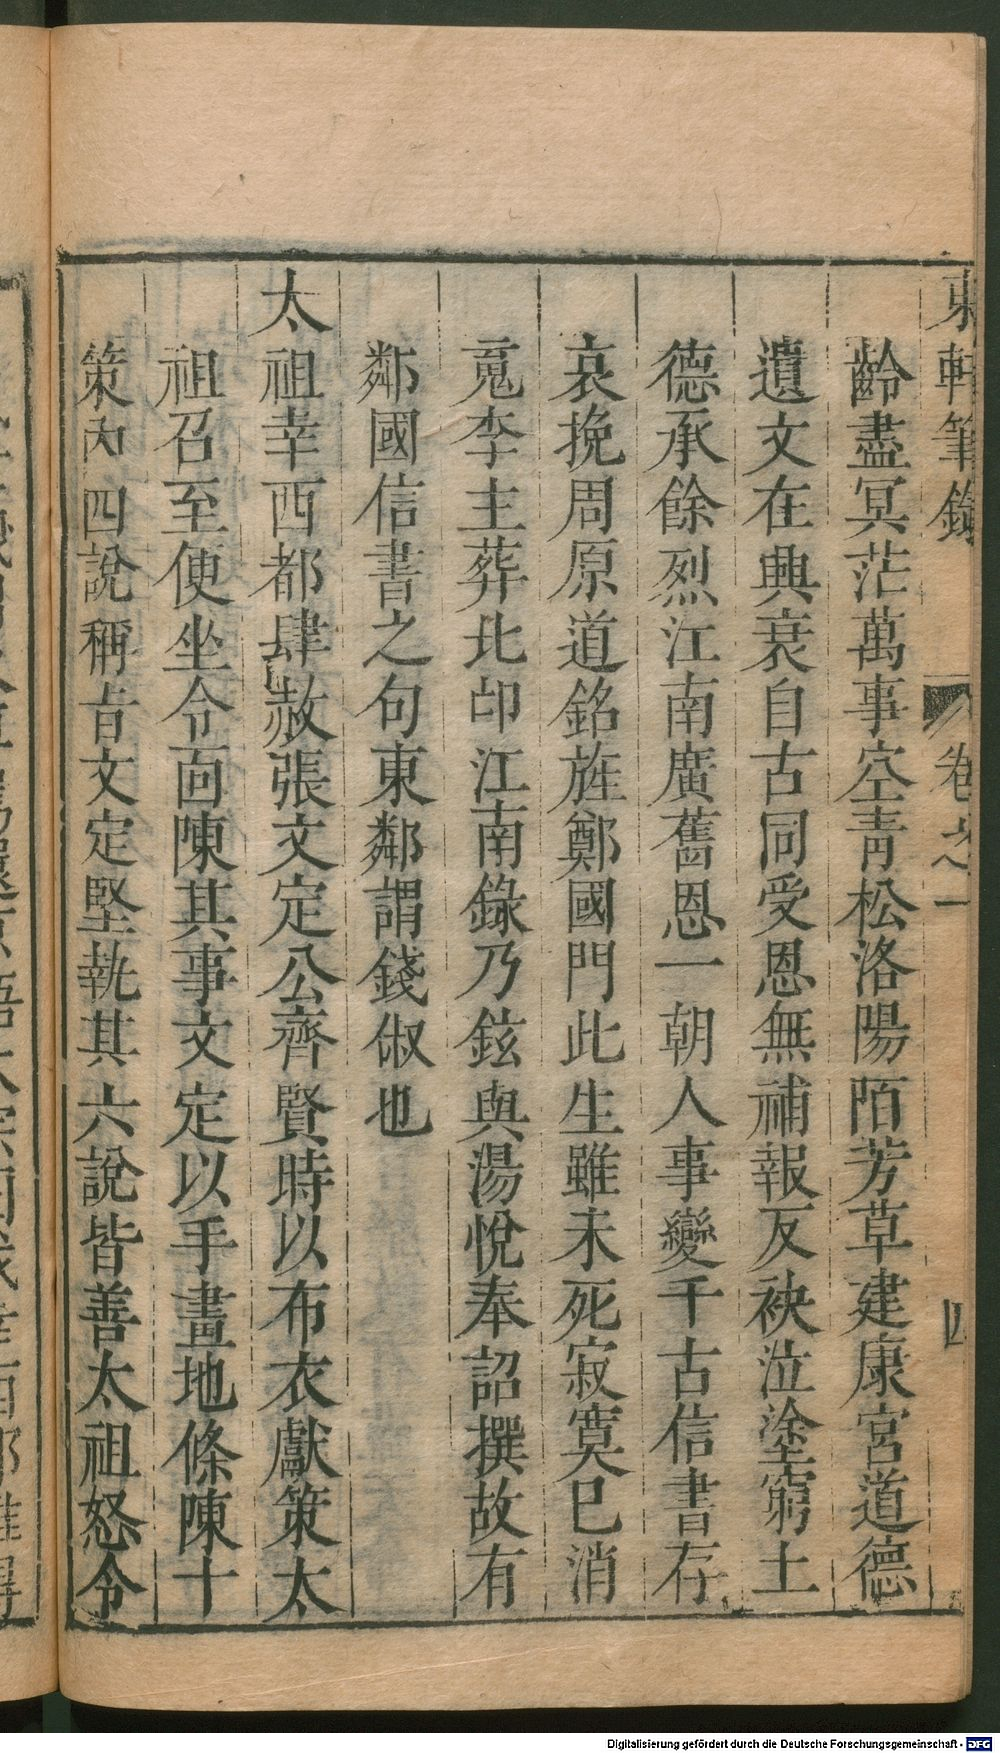 東軒筆錄 卷之一 四
齡盡冥茫萬事空青松洛陽陌芳草建康宮道德
遺文在興衰自古同受恩無補報反袂泣塗窮土
德承餘烈江南廣舊恩一朝人事變千古信書存
哀挽周原道銘旌鄭國門此生雖未死寂寞已消
䰟李主葬北邙江南錄乃鉉與湯悅奉詔撰故有
鄰國信書之句東鄰謂錢俶也
太祖幸西都肆赦張文定公齊賢時以布衣獻策太
祖召至便坐令面陳其事文定以手畫地條陳十
策內四說稱旨文定堅執其六說皆善太祖怒令
Digitalisierung gefördert durch die Deutsche Forschungsgemeinschaft - DFG